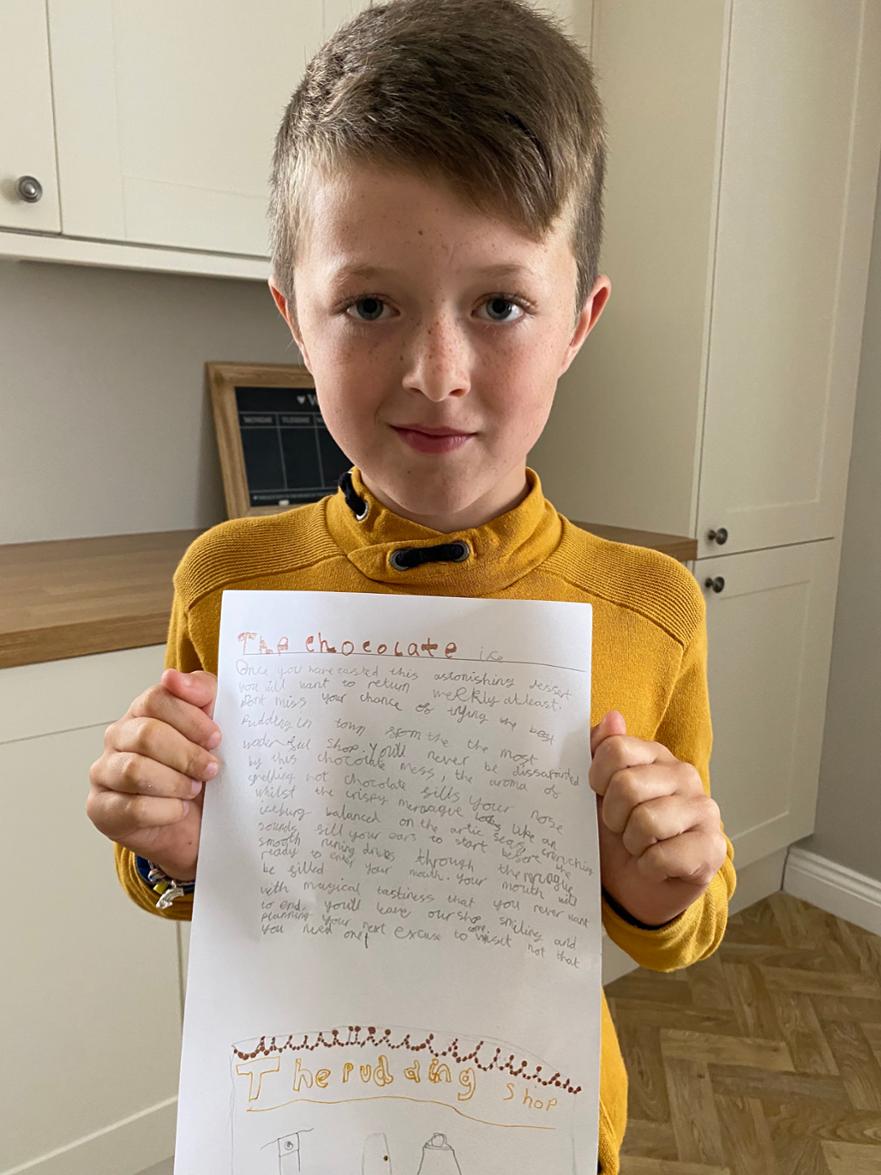 The chocolate ice
Once you have tasted this astonishing dessert
you will want to return weekly at least.
Dont miss your chance of trying the best
Pudding in town from the the most
shop. You'll never be dissapointed
by this chocolate mess, the aroma of
hot chocolate fills your nose
whilst the crispy meraague looks like an
iceburg balanced on the artic seas, crunching
sounds fill your ears to start before the
smooth runing dives through the
ready to enter your mouth. Your mouth will
be filled
with magical tastiness that you never want
to end. You'll leave our shop smiling and
planning your next excuse to visit not that
you need one!
The pudding shop
MONDAY TUESDAY